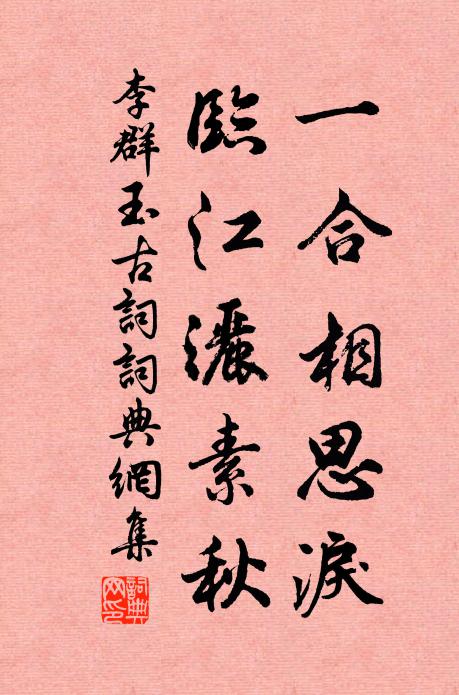 一合相思淚
臨江灑素秋
李群玉古詞詞典網集
詞典網印